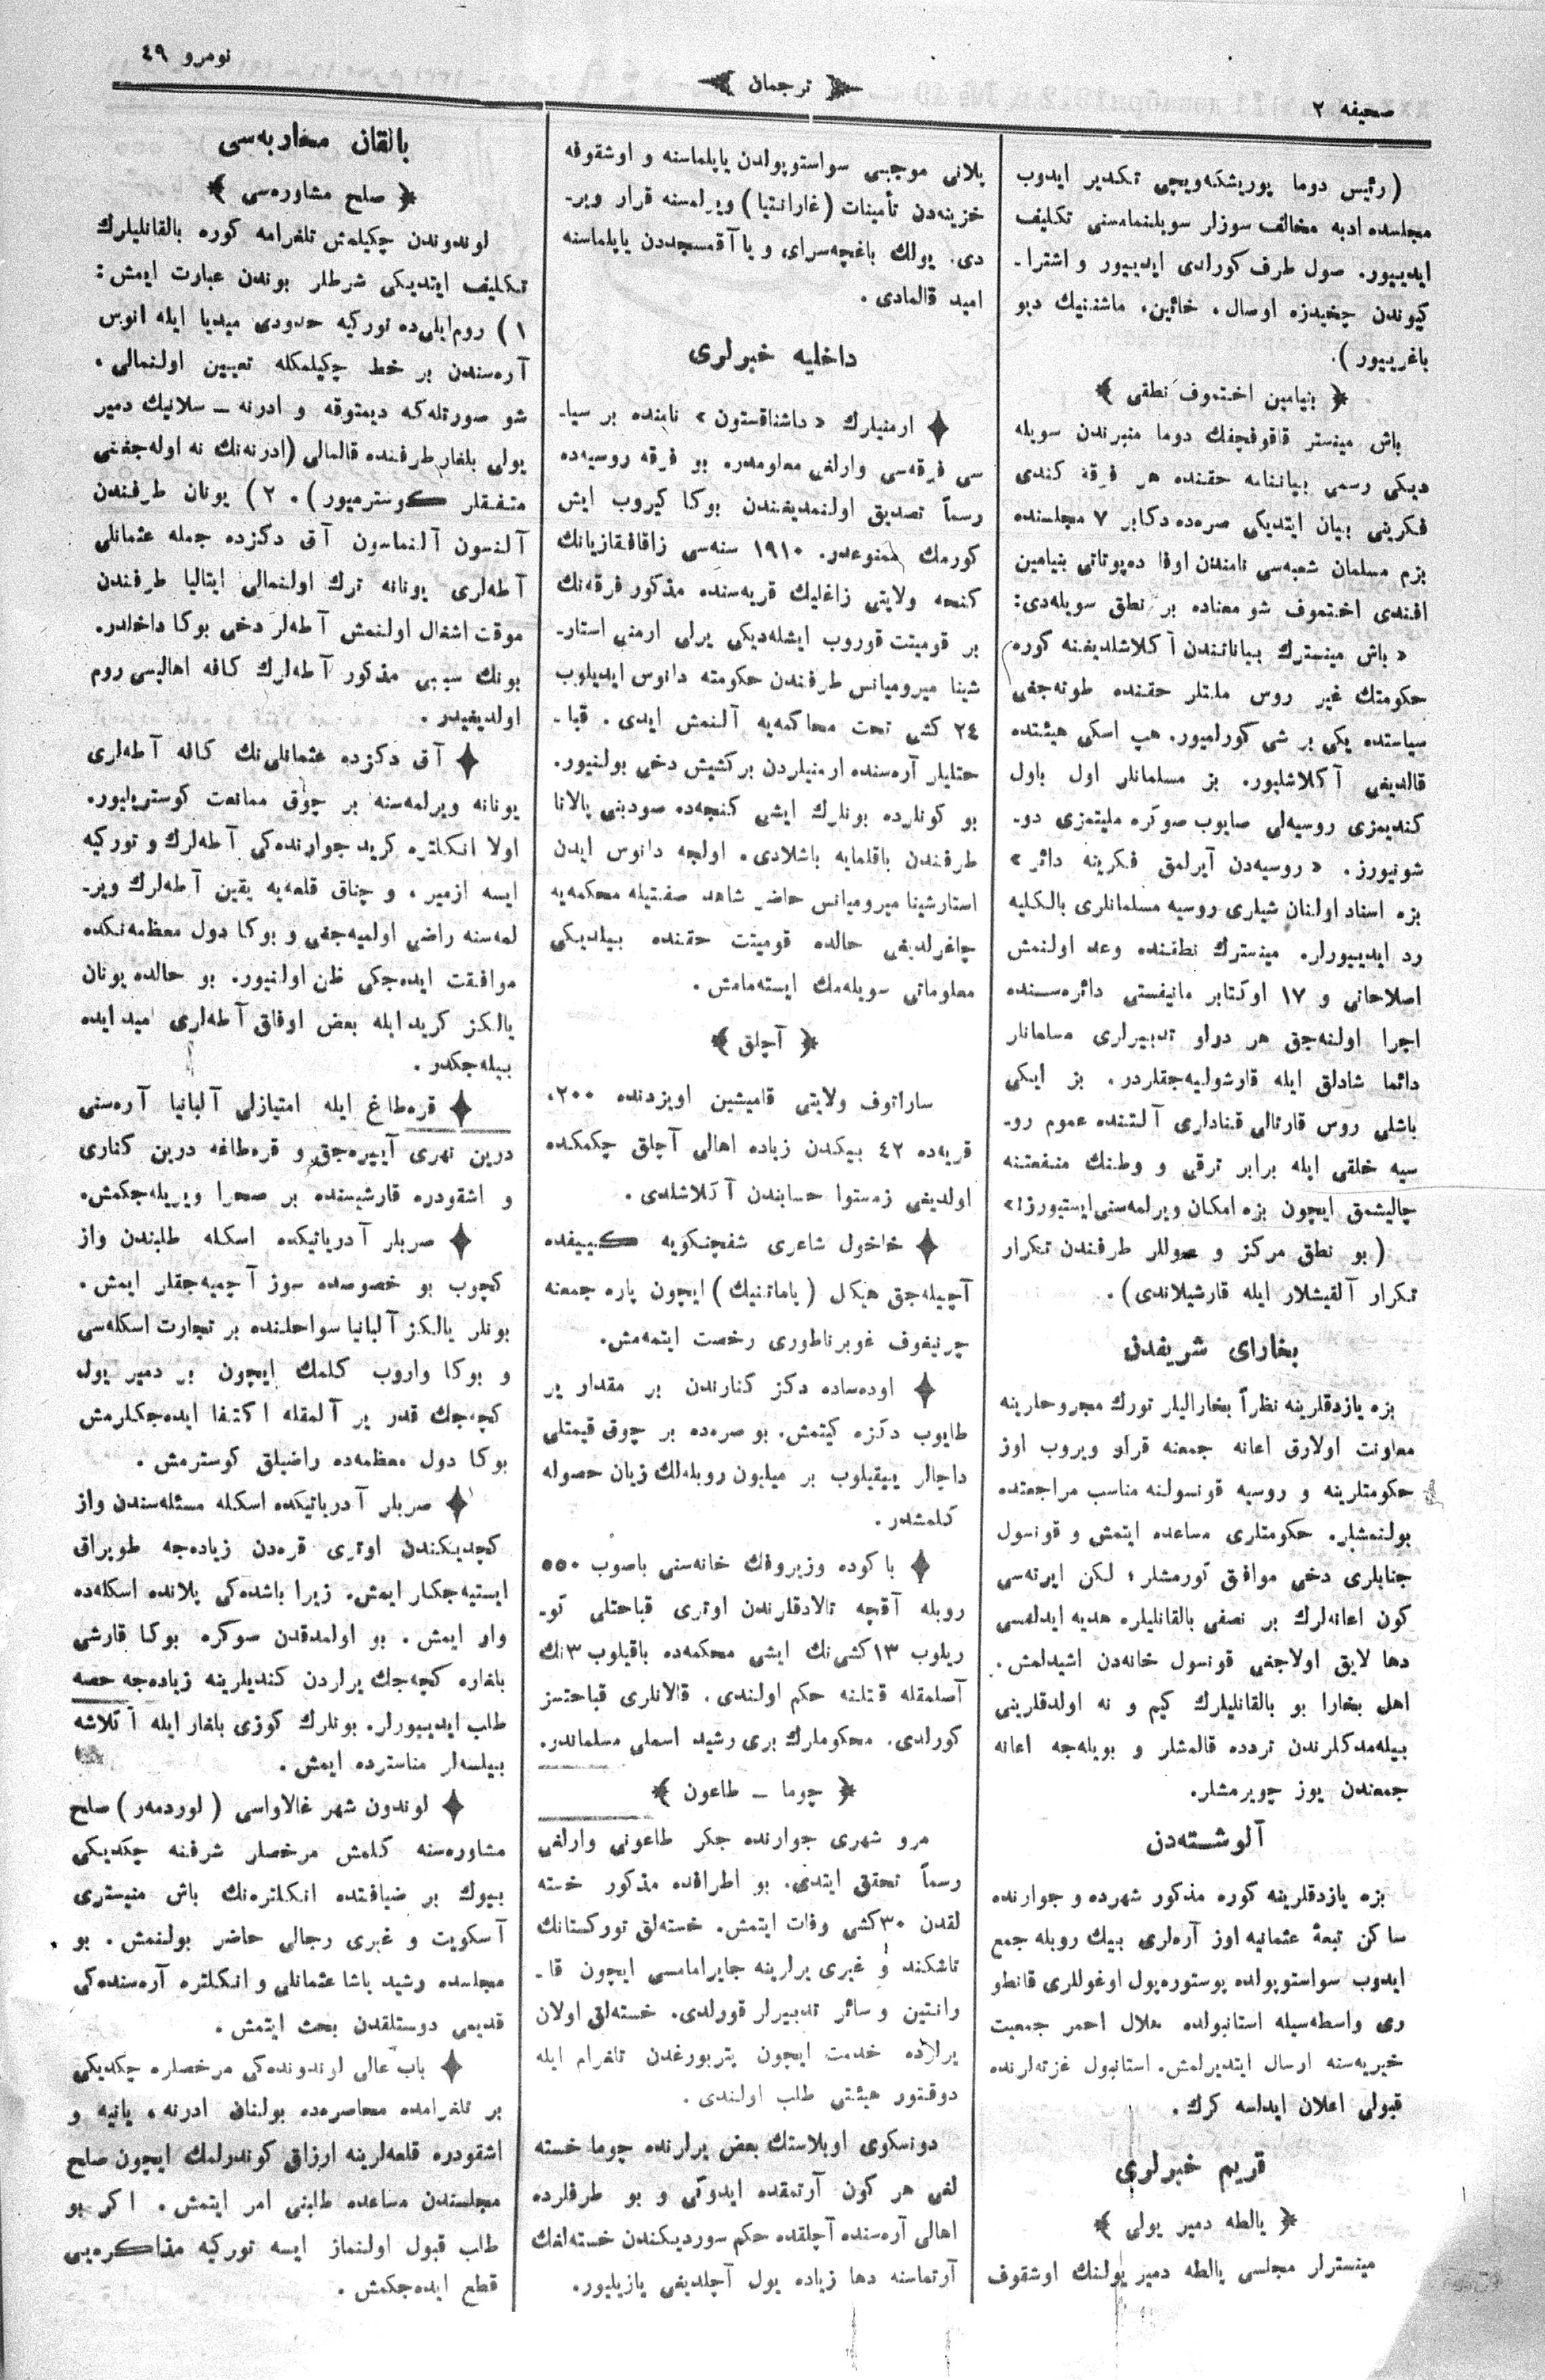 صحیفه ٢
ترجمان
نومرو ٤٩
(رئیس دوما پوریشکه‌ویچی تکدیر ایدوب
مجلسده ادبه مخالف سوزلر سویلنمامسنی تکلیف
ایدییور. صول طرف کورلدی ایدییور و اشترا-
کیوندن چخیدزه اوصال، خائین، ماشننیك دیو
باغرییور).
بنیامین اختموف نطقی
باش مینستر قاقوفچفك دوما منبرندن سویله
دیکی رسمی بیاننامه حقنده هر فرقه کندی
فکرینی بیان ایتدیکی صره‌ده دکابر ٧ مجلسنده
بزم مسلمان شعبه‌سی نامندن اوفا ده‌پوتاتی بنیامین
افندی اختموف شو معناده بر نطق سویله‌دی:
« باش مینسترك بیاناتندن آکلاشلدیغنه کوره
حکومتك غیر روس ملتلر حقنده طوته‌جغی
سیاستده یکی بر شی کورلمیور. هپ اسکی هیئتده
قالدیغی آکلاشلیور. بز مسلمانلر اول باول
کندیمزی روسیه‌لی صایوب صوکره ملیتمزی دو-
شونیورز. « روسیه‌دن آیرلمق فکرینه دائر »
بزه اسناد اولنان شیلری روسیه مسلمانلری بالکلیه
رد ایدییورلر. مینسترك نطقنده وعد اولنمش
اصلاحاتی و ١٧ اوکتابر مانیفستی دائره‌سنده
اجرا اولنه‌جق هر درلو تدبیرلری مسلمانلر
دائما شادلق ایله قارشولیه‌جقلردر. بز ایکی
باشلی روس قارتالی قنادلری آلتنده عموم رو-
سیه خلقی ایله برابر ترقی و وطنك منفعتنه
چالیشمق ایچون بزه امکان ویرلمه‌سنی ایستیورز!»
(بو نطق مرکز و صوللر طرفندن تکرار
تکرار آلقیشلار ایله قارشیلاندی).
بخارای شریفدن
بزه یازدقلرینه نظراً بخارالیلر تورك مجروحلرینه
معاونت اولارق اعانه جمعنه قرار ویروب اوز
حکومتلرینه و روسیه قونسولنه مناسب مراجعتده
بولنمشلر. حکومتلری مساعده ایتمش و قونسول
جنابلری دخی موافق کورمشلر؛ لکن ایرته‌سی
کون اعانه‌لرك بر نصفی بالقانلیلره هدیه ایدلمسی
دها لایق اولاجغی قونسول خانه‌دن اشیدلمش.
اهل بخارا بو بالقانلیلرك کیم و نه اولدقلرینی
بیله‌مدکلرندن تردده قالمشلر و بویله‌جه اعانه
جمعندن یوز چویرمشلر.
آلوشته‌دن
بزه یازدقلرینه کوره مذکور شهرده و جوارنده
ساکن تبعهٔ عثمانیه اوز آره‌لری بیك روبله جمع
ایدوب سواستوپولده پوستوره‌پول اوغوللری قانطو
ری واسطه‌سیله استانبولده هلال احمر جمعیت
خیریه‌سنه ارسال ایتدیرلمش. استانبول غزته‌لرنده
قبولی اعلان ایدلسه کرك.
قریم خبرلری
یالطه دمیر یولی
مینسترلر مجلسی یالطه دمیر یولنك اوشقوف
پلانی موجبی سواستوپولدن یاپلماسنه و اوشقوفه
خزینه‌دن تأمینات (غارانتیا) ویرلمسنه قرار ویر-
دی. یولك باغچه‌سرای و یا آقمسجددن یاپلماسنه
امید قالمادی.
داخلیه خبرلری
ارمنیلرك « داشناقستون » نامنده بر سیا-
سی فرقه‌سی وارلغی معلومدر. بو فرقه روسیه‌ده
رسماً تصدیق اولنمدیغندن بوکا کیروب ایش
کورمك ممنوعدر. ١٩١٠ سنه‌سی زاقافقازیانك
کنجه ولایتی زاغلیك قریه‌سنده مذکور فرقه‌نك
بر قومیتت قوروب ایشله‌دیکی یرلی ارمنی استار-
شینا میرومیانس طرفندن حکومته دانوس ایدیلوب
٢٤ کشی تحت محاکمه‌یه آلنمش ایدی. قبا-
حتلیلر آره‌سنده ارمنیلردن بر کشیش دخی بولنیور.
بو کونلرده بونلرك ایشی کنجه‌ده صودبنی پالاتا
طرفندن باقلمایه باشلادی. اولجه دانوس ایدن
استارشینا میرومیانس حاضر شاهد صفتیله محکمه‌یه
چاغرلدیغی حالده قومیتت حقنده بیلدیکی
معلوماتی سویله‌مك ایسته‌مامش.
آچلق
ساراتوف ولایتی قامیشین اویزدنده ٢٠٠،
قریه‌ده ٤٢ بیکدن زیاده اهالی آچلق چکمکده
اولدیغی زمستوا حسابندن آکلاشلدی.
خاخول شاعری شفچنکویه کییفده
آچیله‌جق هیکل (پاماتنیك) ایچون پاره جمعنه
چرنیغوف غوبرناطوری رخصت ایتمه‌مش.
اوده‌ساده دکز کنارندن بر مقدار یر
طایوب دکزه کیتمش. بو صره‌ده بر چوق قیمتلی
داچالر ییقیلوب بر میلیون روبله‌لك زیان حصوله
کلمشدر.
باکوده وزیروفك خانه‌سنی باصوب ٥٥٠
روبله آقچه تالادقلرندن اوتری قباحتلی کو-
ریلوب ١٣ کشی‌نك ایشی محکمه‌ده باقیلوب ٣ نك
آصلمقله قتلنه حکم اولندی. قالانلری قباحتسز
کورلدی. محکوملرك بری رشید اسملی مسلماندر.
چوما ـ طاعون
مرو شهری جوارنده جکر طاعونی وارلغی
رسماً تحقق ایتدی. بو اطرافده مذکور خسته
لقدن ٣٠ کشی وفات ایتمش. خسته‌لق تورکستانك
تاشکند و غیری یرلرینه جایرامامسی ایچون قا-
رانتین و سائر تدبیرلر قورلدی. خسته‌لق اولان
یرلرده خدمت ایچون پتربورغدن تلغرام ایله
دوقتور هیئتی طلب اولندی.
دونسکوی اوبلاستك بعض یرلرنده چوما خسته
لغی هر کون آرتمقده ایدوکی و بو طرفلرده
اهالی آره‌سنده آچلقده حکم سوردیکندن خسته‌لغك
آرتماسنه دها زیاده یول آچلدیغی یازیلیور.
بالقان محاربه‌سی
صلح مشاوره‌سی
لوندوندن چکیلمش تلغرامه کوره بالقانلیلرك
تکلیف ایتدیکی شرطلر بوندن عبارت ایمش:
١) روم‌ایلی‌ده تورکیه حدودی میدیا ایله انوس
آره‌سندن بر خط چکیلمکله تعیین اولنمالی.
شو صورتله‌که دیمتوقه و ادرنه ـ سلانیك دمیر
یولی بلغار طرفنده قالمالی (ادرنه‌نك نه اوله‌جغنی
متفقلر کوسترمیور). ٢) یونان طرفندن
آلنسون آلنماسون آق دکزده جمله عثمانلی
آطه‌لری یونانه ترك اولنمالی ایتالیا طرفندن
موقت اشغال اولنمش آطه‌لر دخی بوکا داخلدر.
بونك سببی مذکور آطه‌لرك کافه اهالیسی روم
اولدیغیدر.
آق دکزده عثمانلی‌نك کافه آطه‌لری
یونانه ویرلمه‌سنه بر چوق ممانعت کوستریلیور.
اولا انکلتره کرید جوارنده‌کی آطه‌لرك و تورکیه
ایسه ازمیر، و چناق قلعه‌یه یقین آطه‌لرك ویر-
لمه‌سنه راضی اولمیه‌جغی و بوکا دول معظمه‌نکده
موافقت ایده‌جکی ظن اولنیور. بو حالده یونان
یالکز کرید ایله بعض اوفاق آطه‌لری امید ایده
بیله‌جکدر.
قره‌طاغ ایله امتیازلی آلبانیا آره‌سنی
درین نهری آییره‌جق و قره‌طاغه درین کناری
و اشقودره قارشیسنده بر صحرا ویریله‌جکمش.
صربلر آدریاتیکده اسکله طلبندن واز
کچوب بو خصوصده سوز آچمیه‌جقلر ایمش.
بونلر یالکز آلبانیا سواحلنده بر تجارت اسکله‌سی
و بوکا واروب کلمك ایچون بر دمیر یول
کچه‌جك قدر یر آلمقله اکتفا ایده‌جکلرمش
بوکا دول معظمه‌ده راضیلق کوسترمش.
صربلر آدریاتیکده اسکله مسئله‌سندن واز
کچدیکندن اوتری قره‌دن زیاده‌جه طوپراق
ایستیه‌جکلر ایمش. زیرا باشده‌کی پلانده اسکله‌ده
وار ایمش. بو اولمدقدن صوکره بوکا قارشی
بلغاره کچه‌جك یرلردن کندیلرینه زیاده‌جه حصه
طلب ایدییورلر. بونلرك کوزی بلغار ایله آکلاشه
بیلسه‌لر مناسترده ایمش.
لوندون شهر غالاواسی (لوردمه‌ر) صلح
مشاوره‌سنه کلمش مرخصلر شرفنه چکدیکی
بیوك بر ضیافتده انکلتره‌نك باش منیستری
آسکویت و غیری رجالی حاضر بولنمش. بو
مجلسده رشید پاشا عثمانلی و انکلتره آره‌سنده‌کی
قدیمی دوستلقدن بحث ایتمش.
باب عالی لوندونده‌کی مرخصلره چکدیکی
بر تلغرامده محاصره‌ده بولنان ادرنه، یانیه و
اشقودره قلعه‌لرینه ارزاق کوندرلمك ایچون صلح
مجلسندن مساعده طلبنی امر ایتمش. اکر بو
طلب قبول اولنماز ایسه تورکیه مذاکره‌یی
قطع ایده‌جکمش.